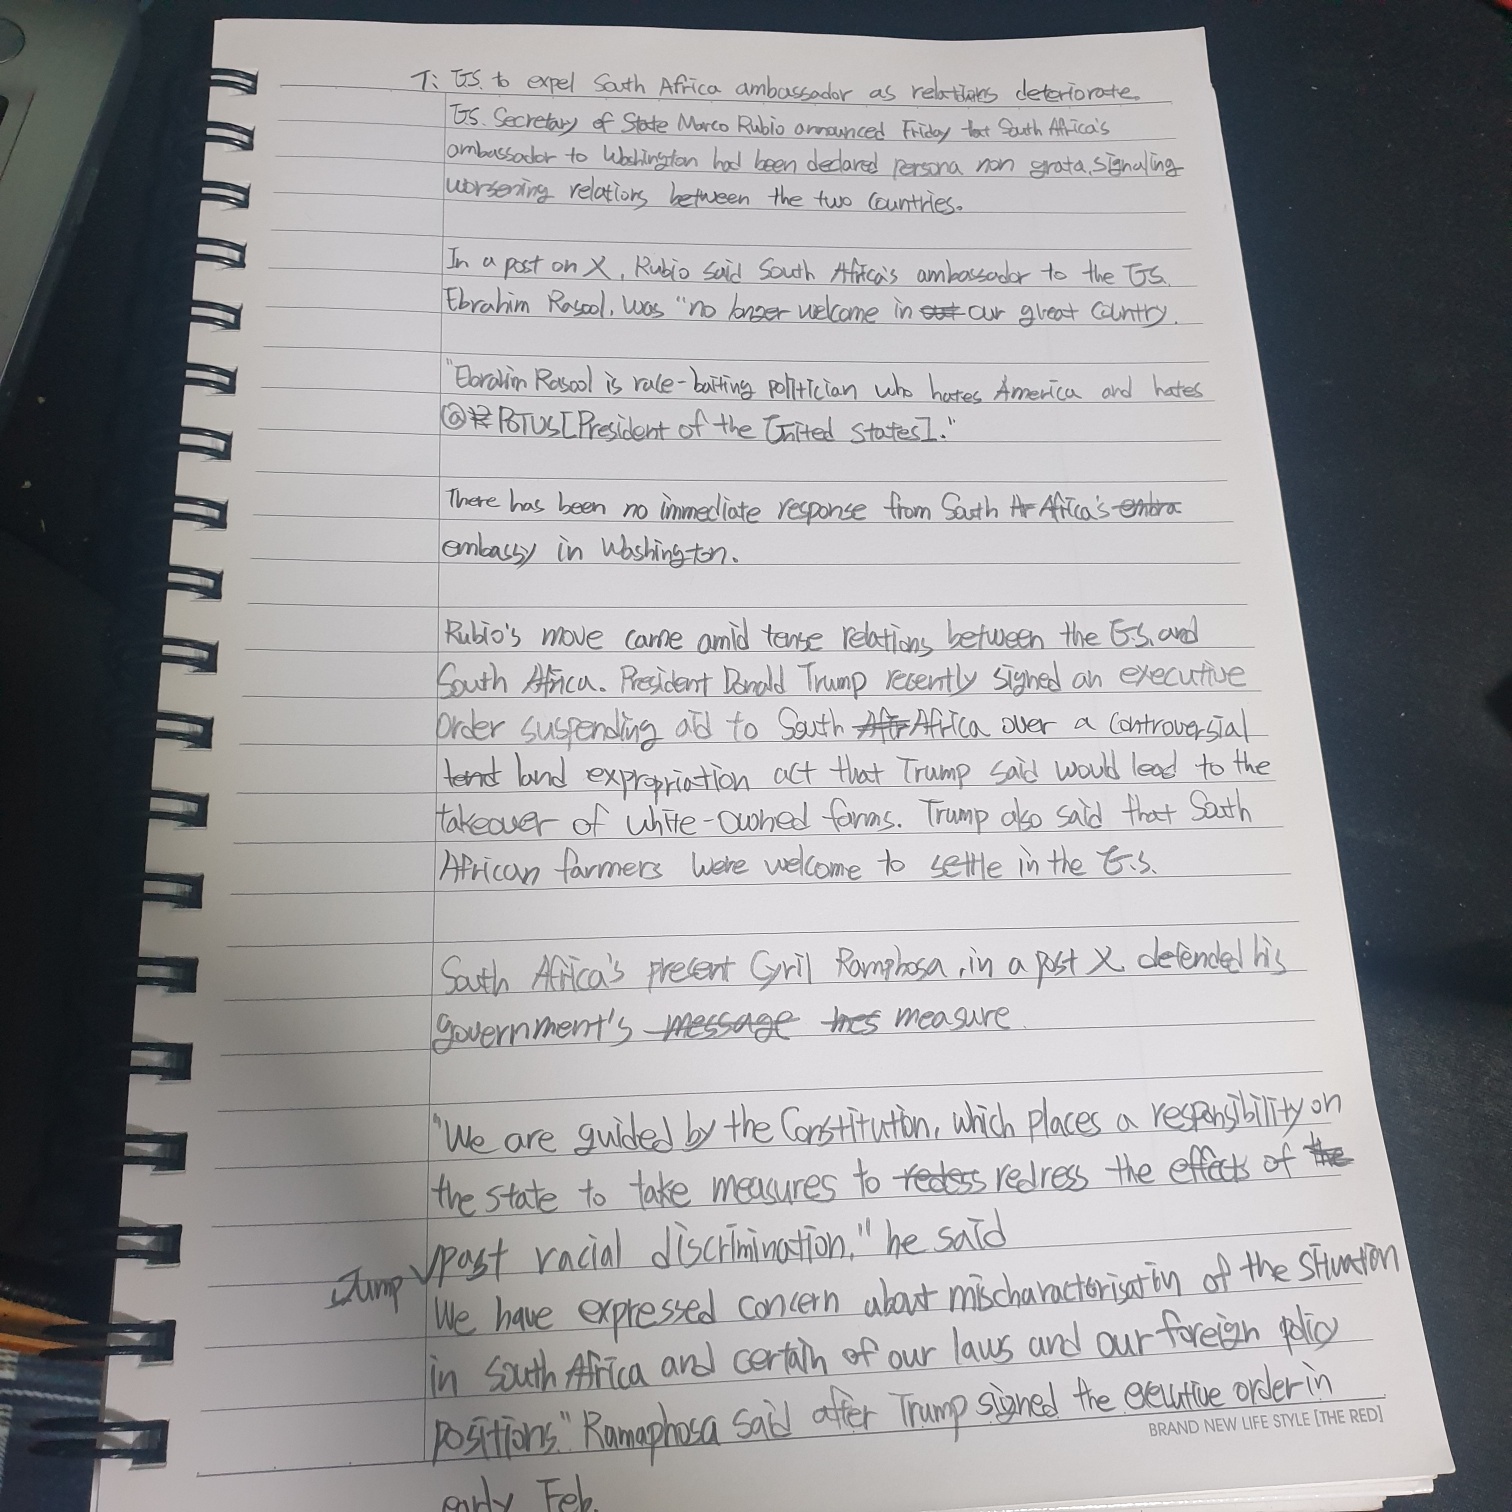 T: U.S. to expel South Africa ambassador as relations deteriorate.
U.S. Secretary of State Marco Rubio announced Friday that South Africa's
ambassador to Washington had been declared persona non grata, signaling
worsening relations between the two countries.
In a post on X, Rubio said South Africa's ambassador to the U.S.
Ebrahim Rasool, was "no longer welcome in out our great country.
"Ebrahim Rasool is race-baiting politician who hates America and hates
@POTUS[President of the United States]."
There has been no immediate response from South Af Africa's embra
embassy in Washington.
Rubio's move came amid tense relations between the U.S. and
South Africa. President Donald Trump recently signed an executive
order suspending aid to South Afr Africa over a controversial
land expropriation act that Trump said would lead to the
takeover of white-owned farms. Trump also said that South
African farmers were welcome to settle in the U.S.
South Africa's present Cyril Ramphosa, in a post X, defended his
government's message mes measure.
"We are guided by the Constitution, which places a responsibility on
the state to take measures to redess redress the effects of the
past racial discrimination," he said
Jump
We have expressed concern about mischaractorisatin of the situation
in South Africa and certain of our laws and our foreign policy
positions" Ramaphosa said after Trump signed the executive order in
BRAND NEW LIFE STYLE [THE RED]
early Feb.